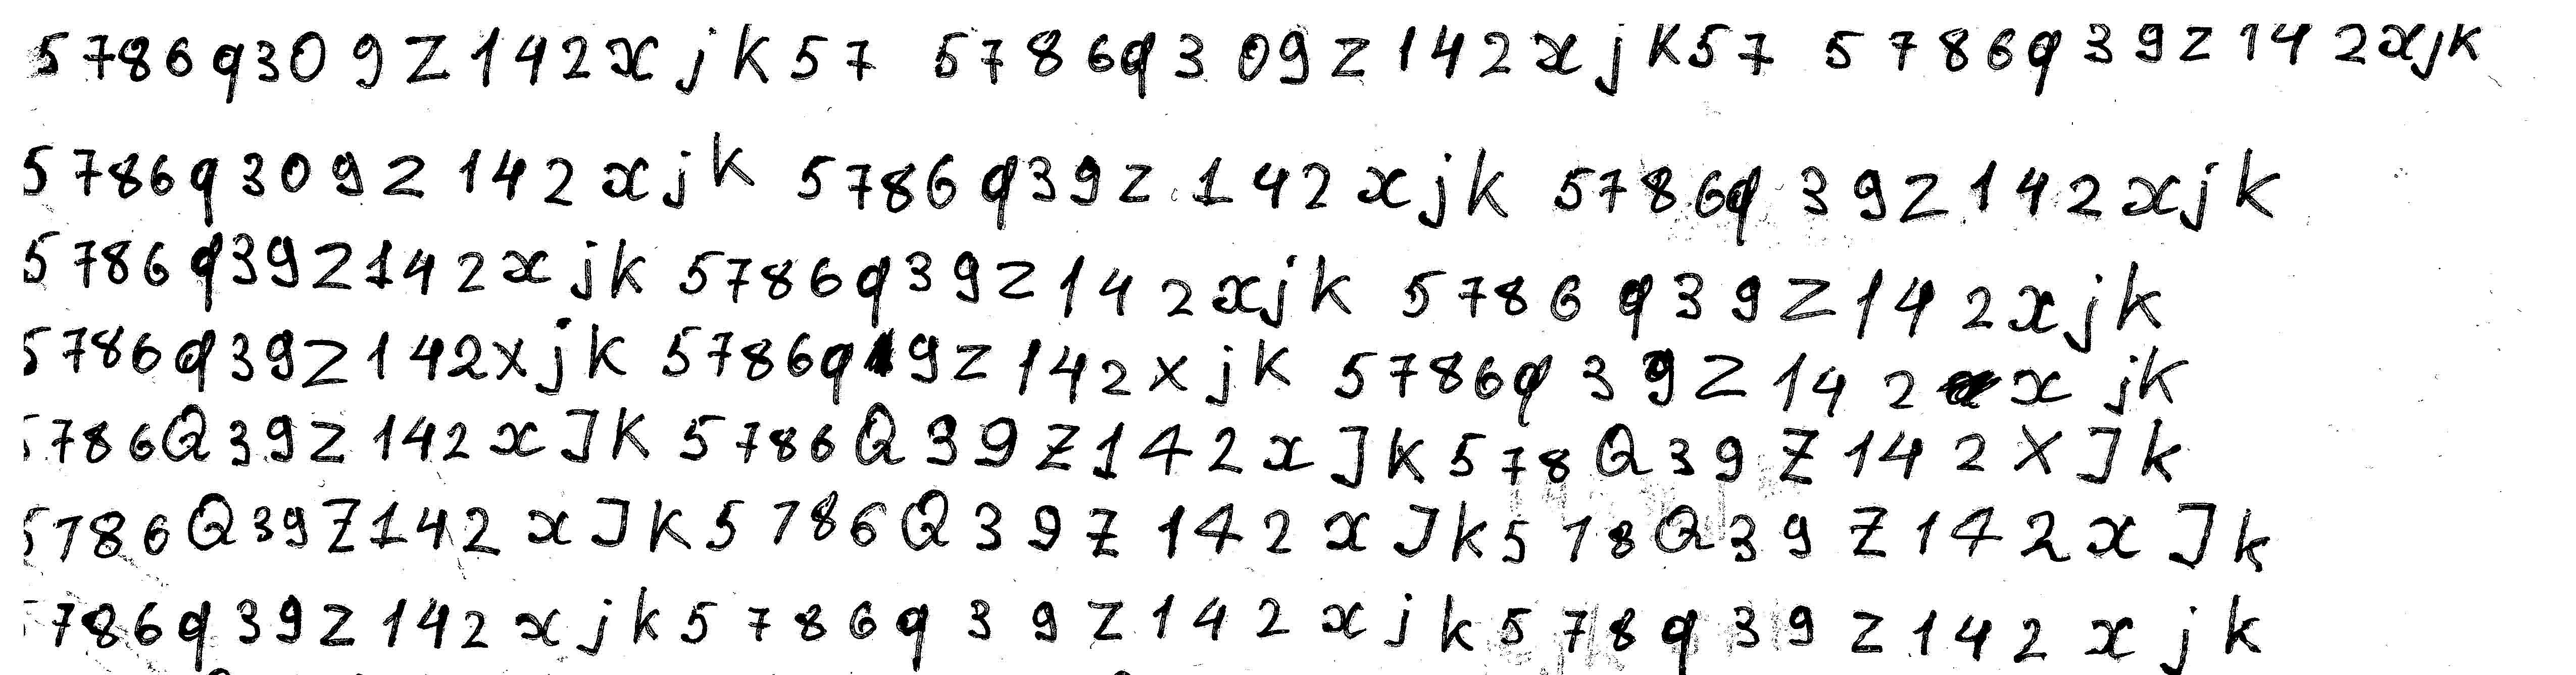 5786q309z142xjk57 5786q309z142xjk57 5786q39z142xjk
5786q309z142xjk 5786q39z142xjk 5786q39z142xjk
5786q39z142xjk 5786q39z142xjk 5786q39z142xjk
5786q39z142xjk 5786q19z142xjk 5786q39z142xjk
5786Q39z142xJK 5786Q39Z142xJK 578Q39Z142XJk
5786Q39Z142xJK 5786Q39Z142xJk 578Q39Z142xJk
5786q39z142xjk 5786q39z142xjk 578q39z142xjk